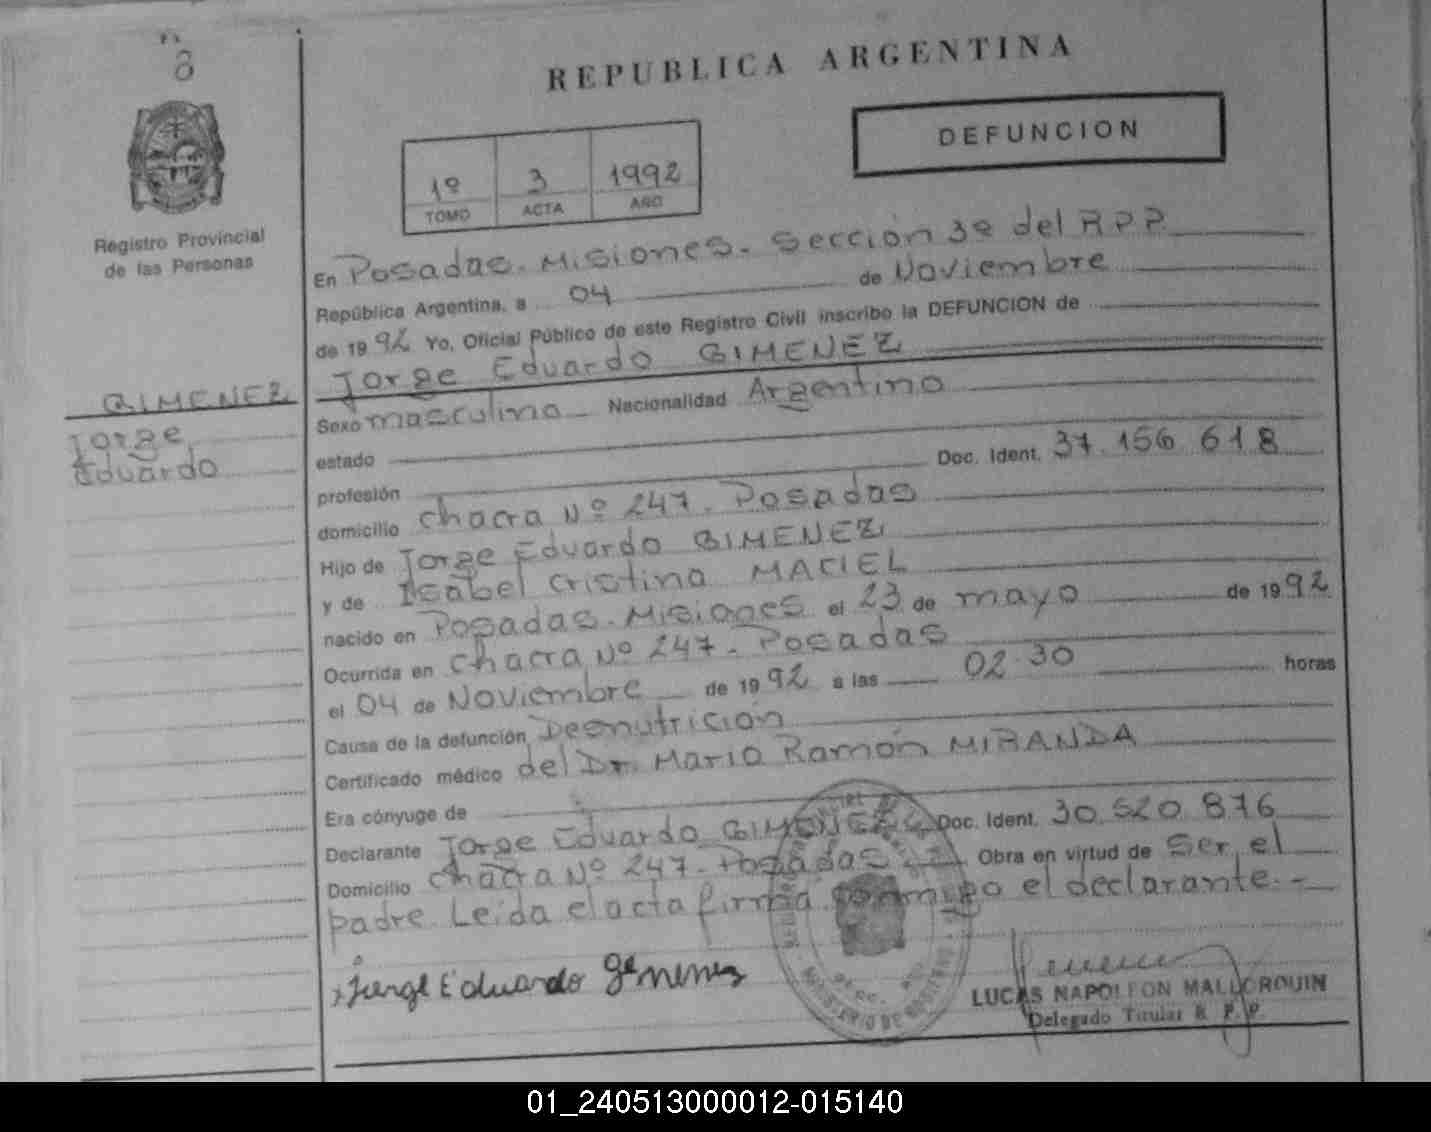 8
REPUBLICA ARGENTINA
DEFUNCION
1º 3 1992
TOMO ACTA AÑO
Registro Provincial
de las Personas
En Posadas. Misiones. Sección 3º del RPP
República Argentina, a 04 de Noviembre
de 1992 Yo, Oficial Público de este Registro Civil inscribo la DEFUNCION de
Jorge Eduardo GIMENEZ
GIMENEZ
Jorge
Eduardo
Sexo masculino Nacionalidad Argentino
estado
profesión Doc. Ident. 37.156.618
domicilio chacra Nº 247. Posadas
Hijo de Jorge Eduardo GIMENEZ
y de Isabel Cristina MACIEL
nacido en Posadas. Misiones el 23 de mayo de 1992
Ocurrida en chacra Nº 247. Posadas
el 04 de Noviembre de 1992 a las 02.30 horas
Causa de la defunción Desnutrición
Certificado médico del Dr. Mario Ramón MIRANDA
Era cónyuge de
Declarante Jorge Eduardo GIMENEZ Doc. Ident. 30.520.876
Domicilio chacra Nº 247. Posadas Obra en virtud de Ser el
padre. Leída el acta firma conmigo el declarante.-
Jorge Eduardo Gimenez
LUCAS NAPOLEON MALLORQUIN
Delegado Titular R. P. P.
01_240513000012-015140